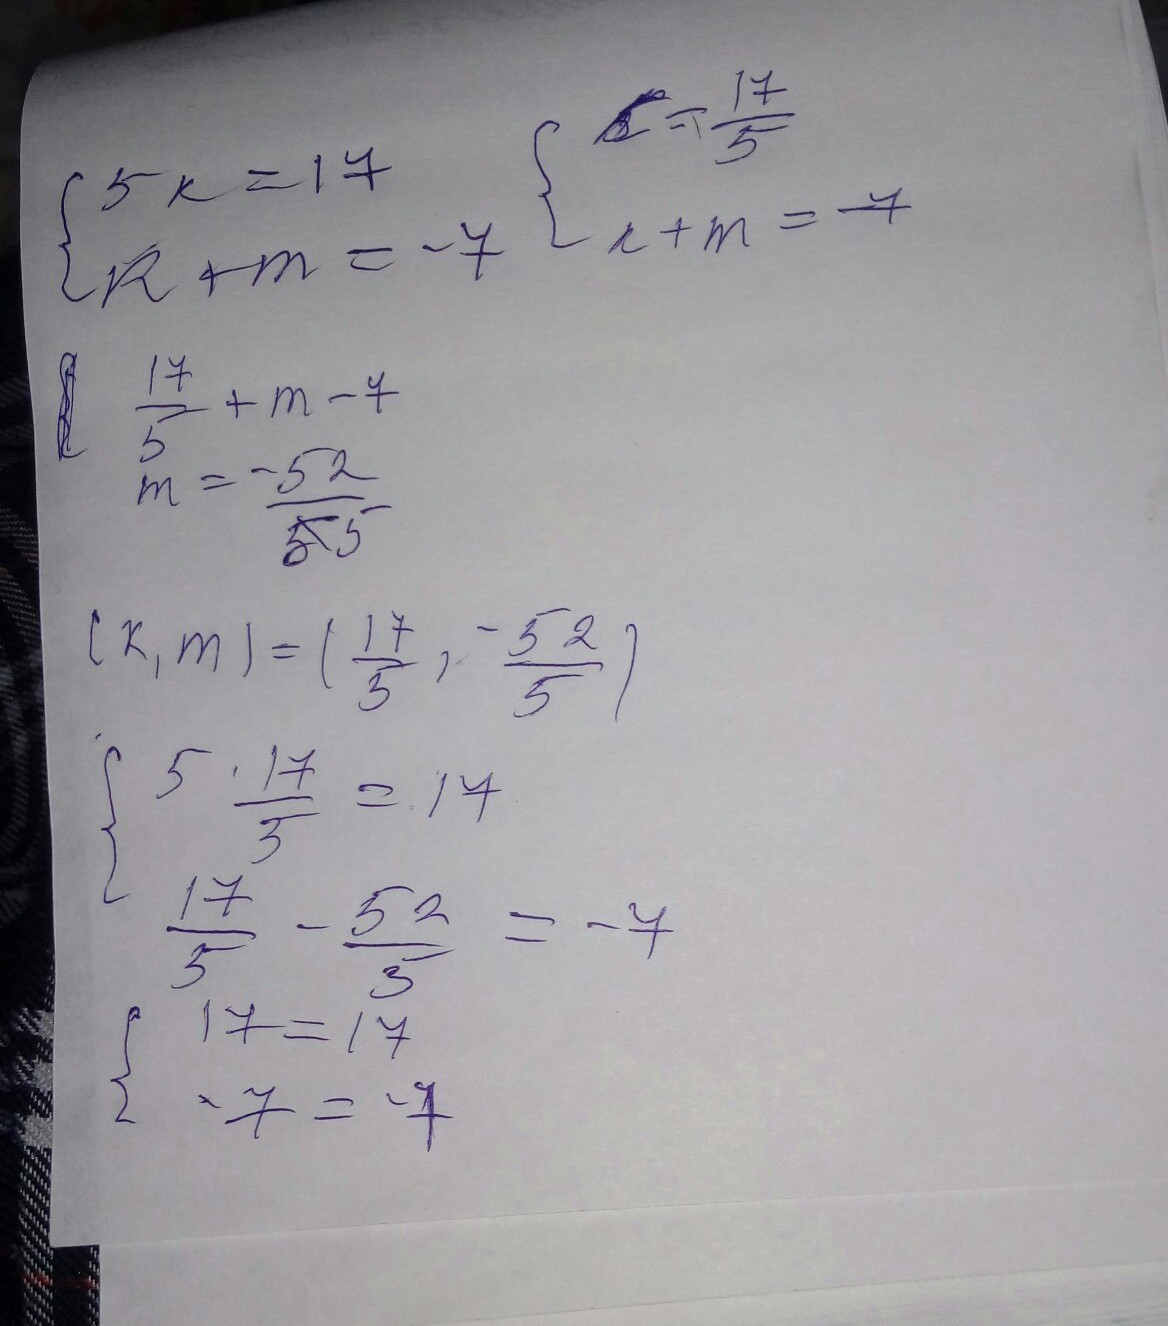 { 5к = 17
к + m = -7
{ к = 17/5
к + m = -7
17/5 + m - 7
m = -52/5
(к, m) = (17/5, -52/5)
{ 5 · 17/5 = 17
17/5 - 52/5 = -7
{ 17 = 17
-7 = -7